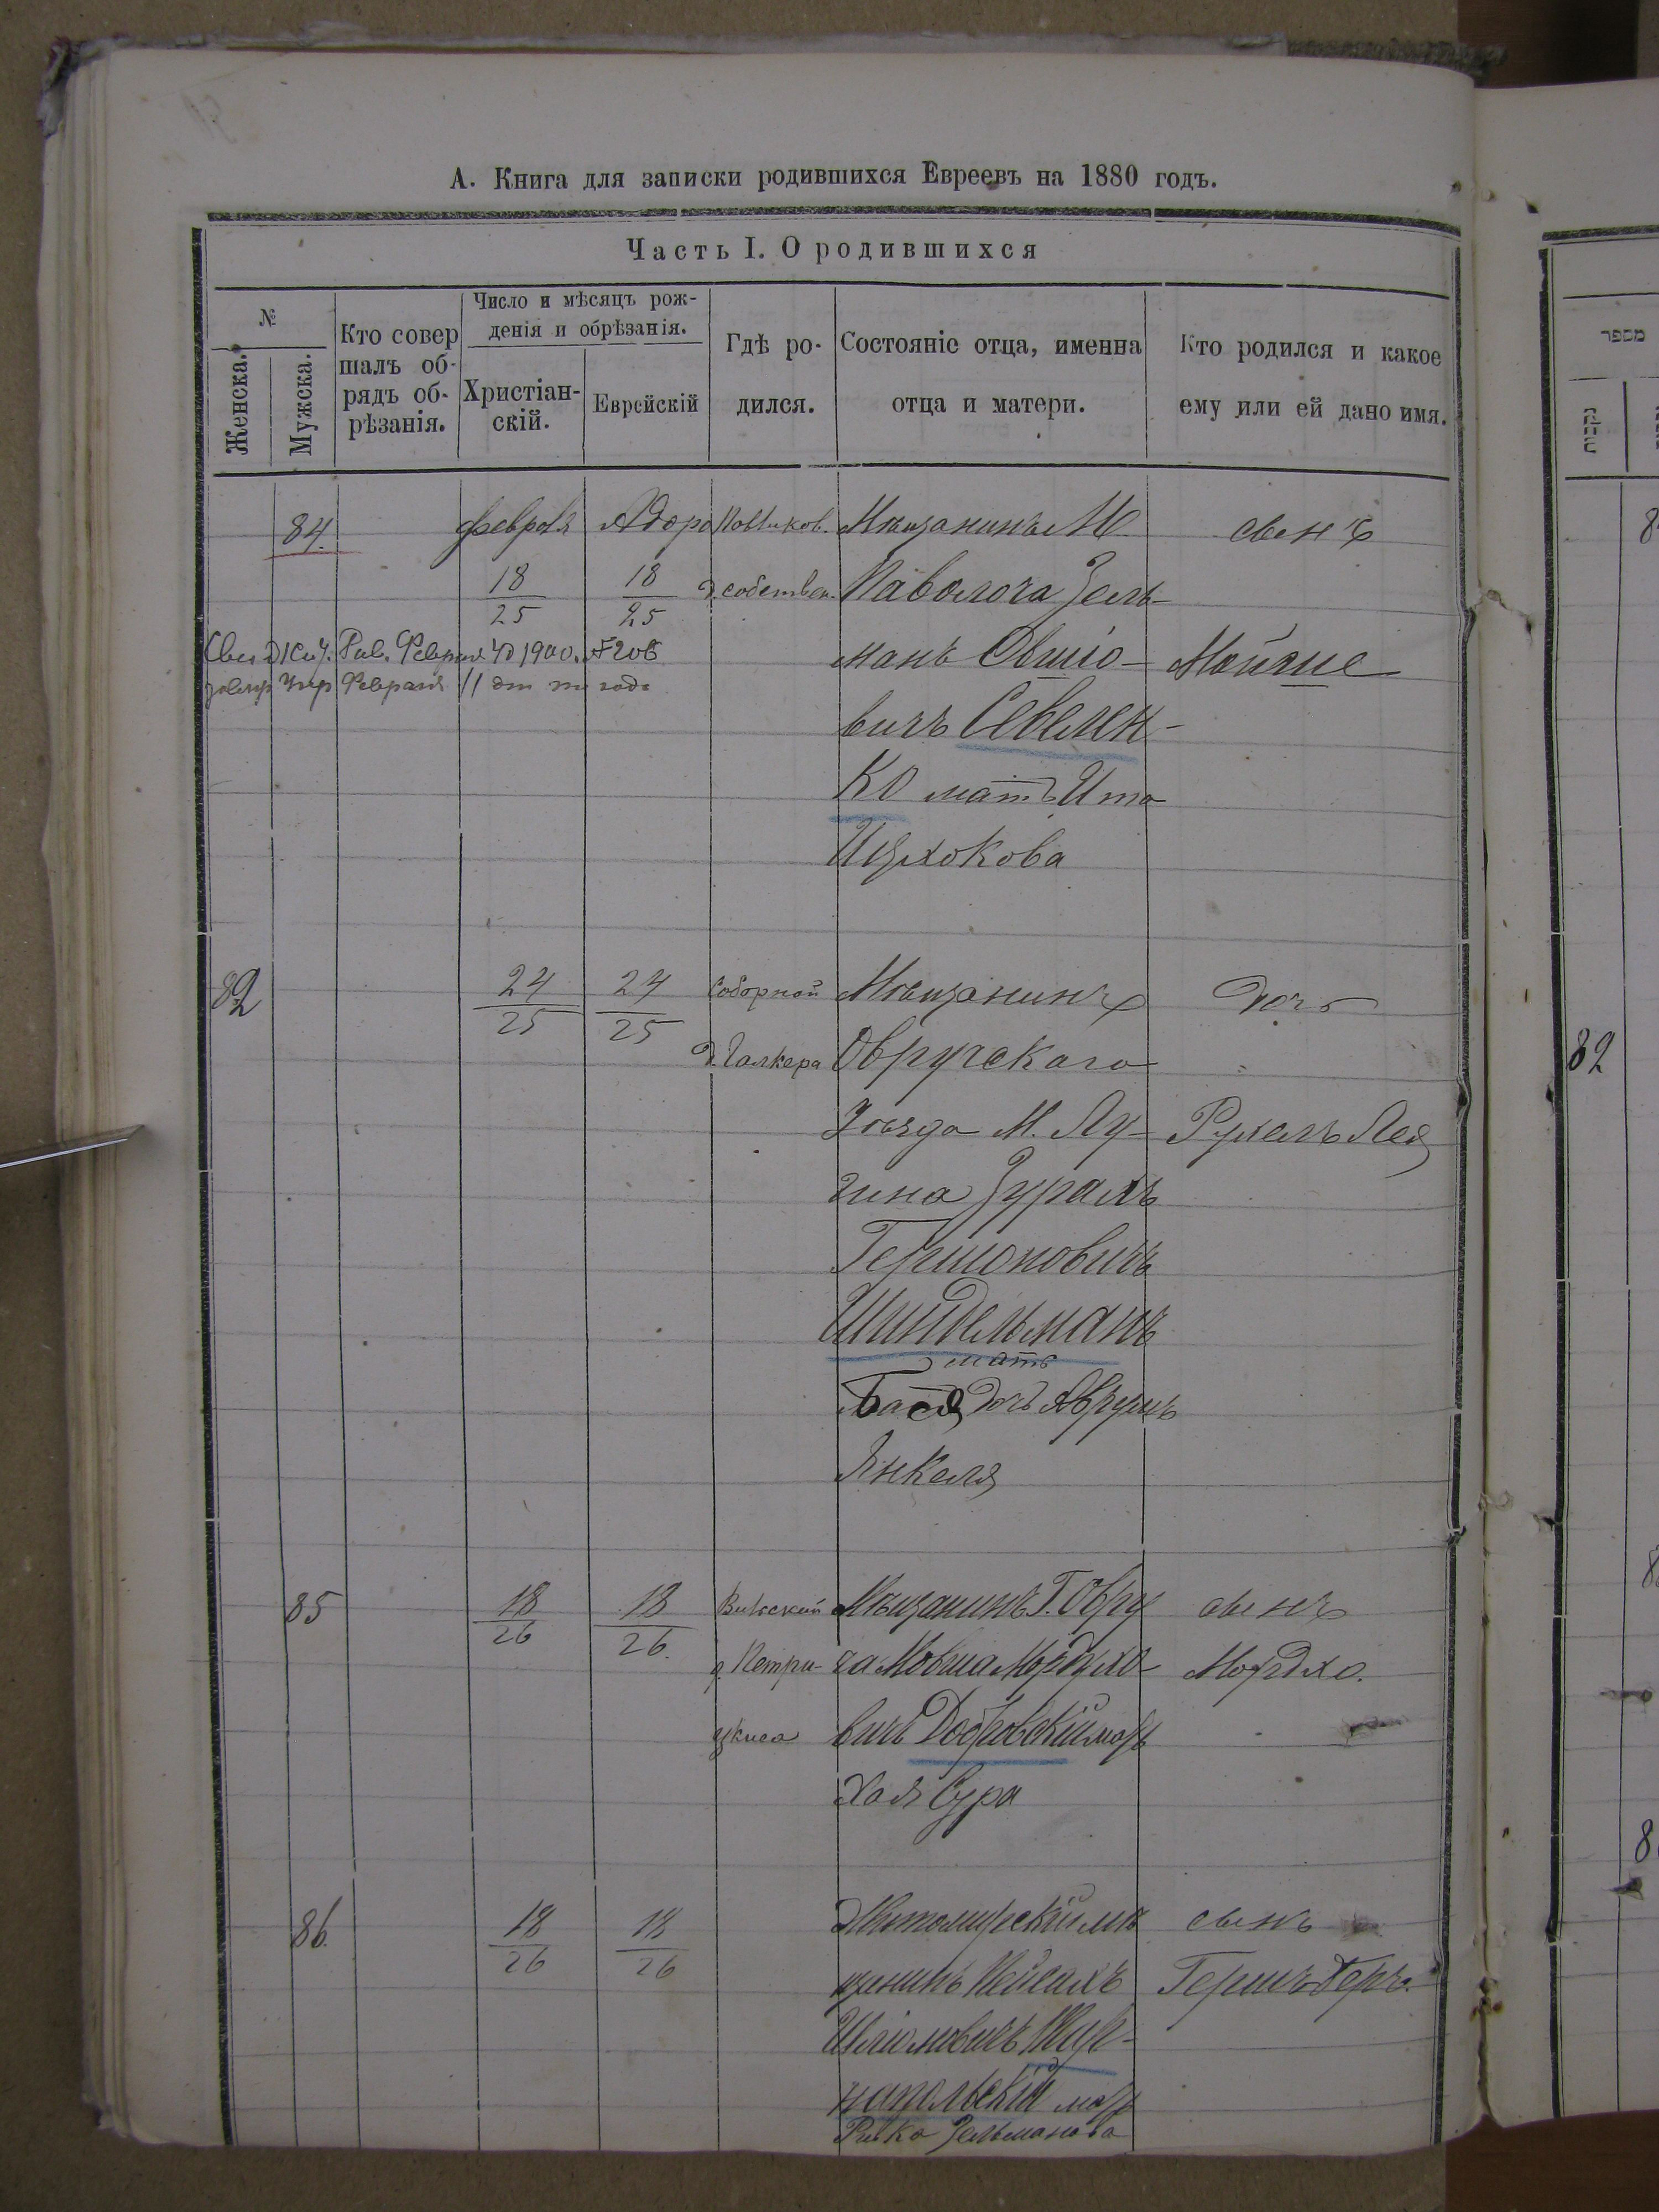 А. Книга для записки родившихся Евреевъ на 1880 годъ.
Часть I. О родившихся
№
Женска.
Мужска.
Кто совер
шалъ об-
рядъ об-
рѣзанія.
Число и мѣсяцъ рож-
денія и обрѣзанія.
Христіан-
скій.
Еврейскій
Гдѣ ро-
дился.
Состояніе отца, именна
отца и матери.
Кто родился и какое
ему или ей дано имя.
84.
Февраля
18
25
Адара
18
25
д. собствен.
Мѣщанинъ М.
Паволоча Зель-
манъ Овшіо-
вичъ Севелен-
ко мать Ита
Ицхокова
сынъ
Мойше
Февраля 11 дня
82
24
25
24
25
Соборной
д. Галкера
Мѣщанинъ
Овручскаго
Уѣзда М. Лу-
гина
Гершоновичъ
Шиндельманъ
мать
Бася дочь Аврумъ
Янкеля
дочь
Рухель Лея
85
18
26
18
26.
д. Петри-
Мѣщанинъ Г. Овру
ча Мовша Мордухо-
вичъ Добровскій мать
Хая Сура
сынъ
Мордхо.
86.
18
26
18
26
Житомирскій мѣ
щанинъ Пейсахъ
Шліомовичъ
напольскій мать
Ривка Зельманова
сынъ
Гершъ Беръ.
מספר
נקבות
82